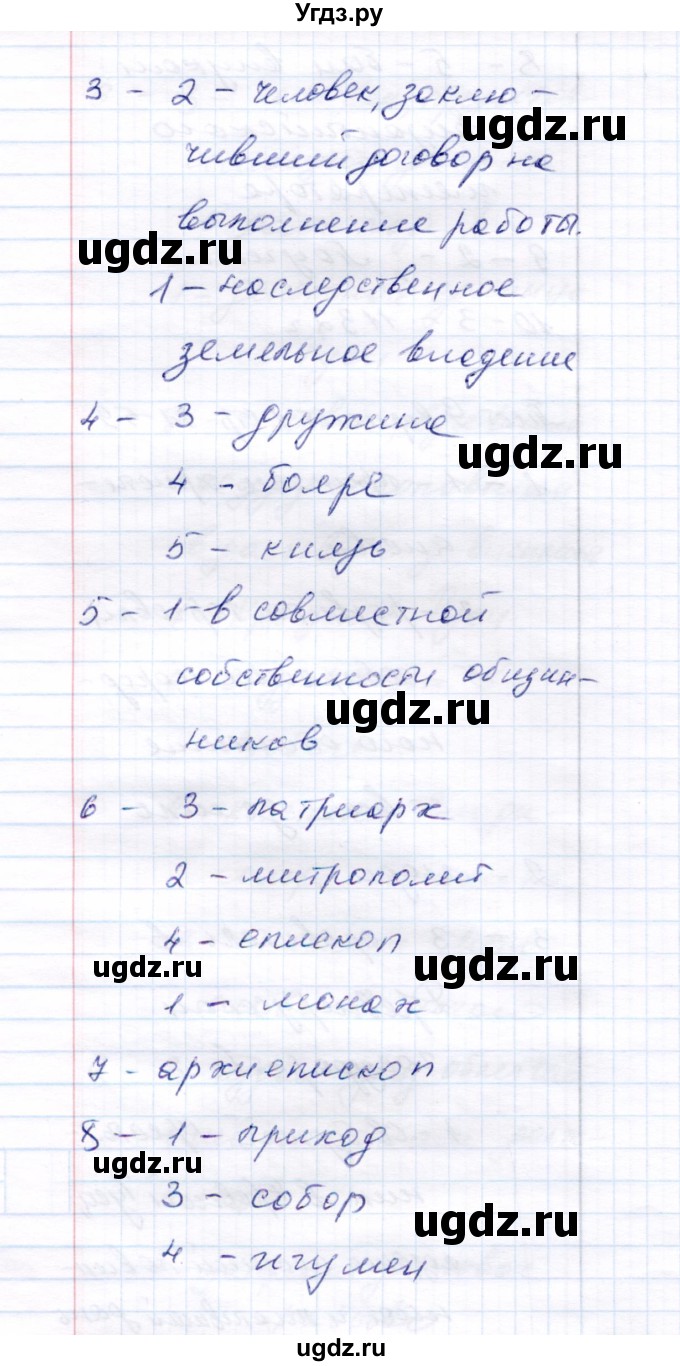 Угдз.ру
3 - 2 - человек, заклю -
ugdz.ru
чивший договор на
выполнение работы.
ugdz.ru
1 - наследственное
земельное владение
4 - 3 - дружина
ugdz.ru
4 - бояре
5 - князь
5 - 1 - в совместной
собственности общин-
ugdz.ru
ников
6 - 3 - патриарх
2 - митрополит
4 - епископ
ugdz.ru
ugdz.ru
1 - монах
7 - архиепископ
8 - 1 - приход
ugdz.ru
3 - собор
ugdz.ru
4 - игумен
ugdz.ru